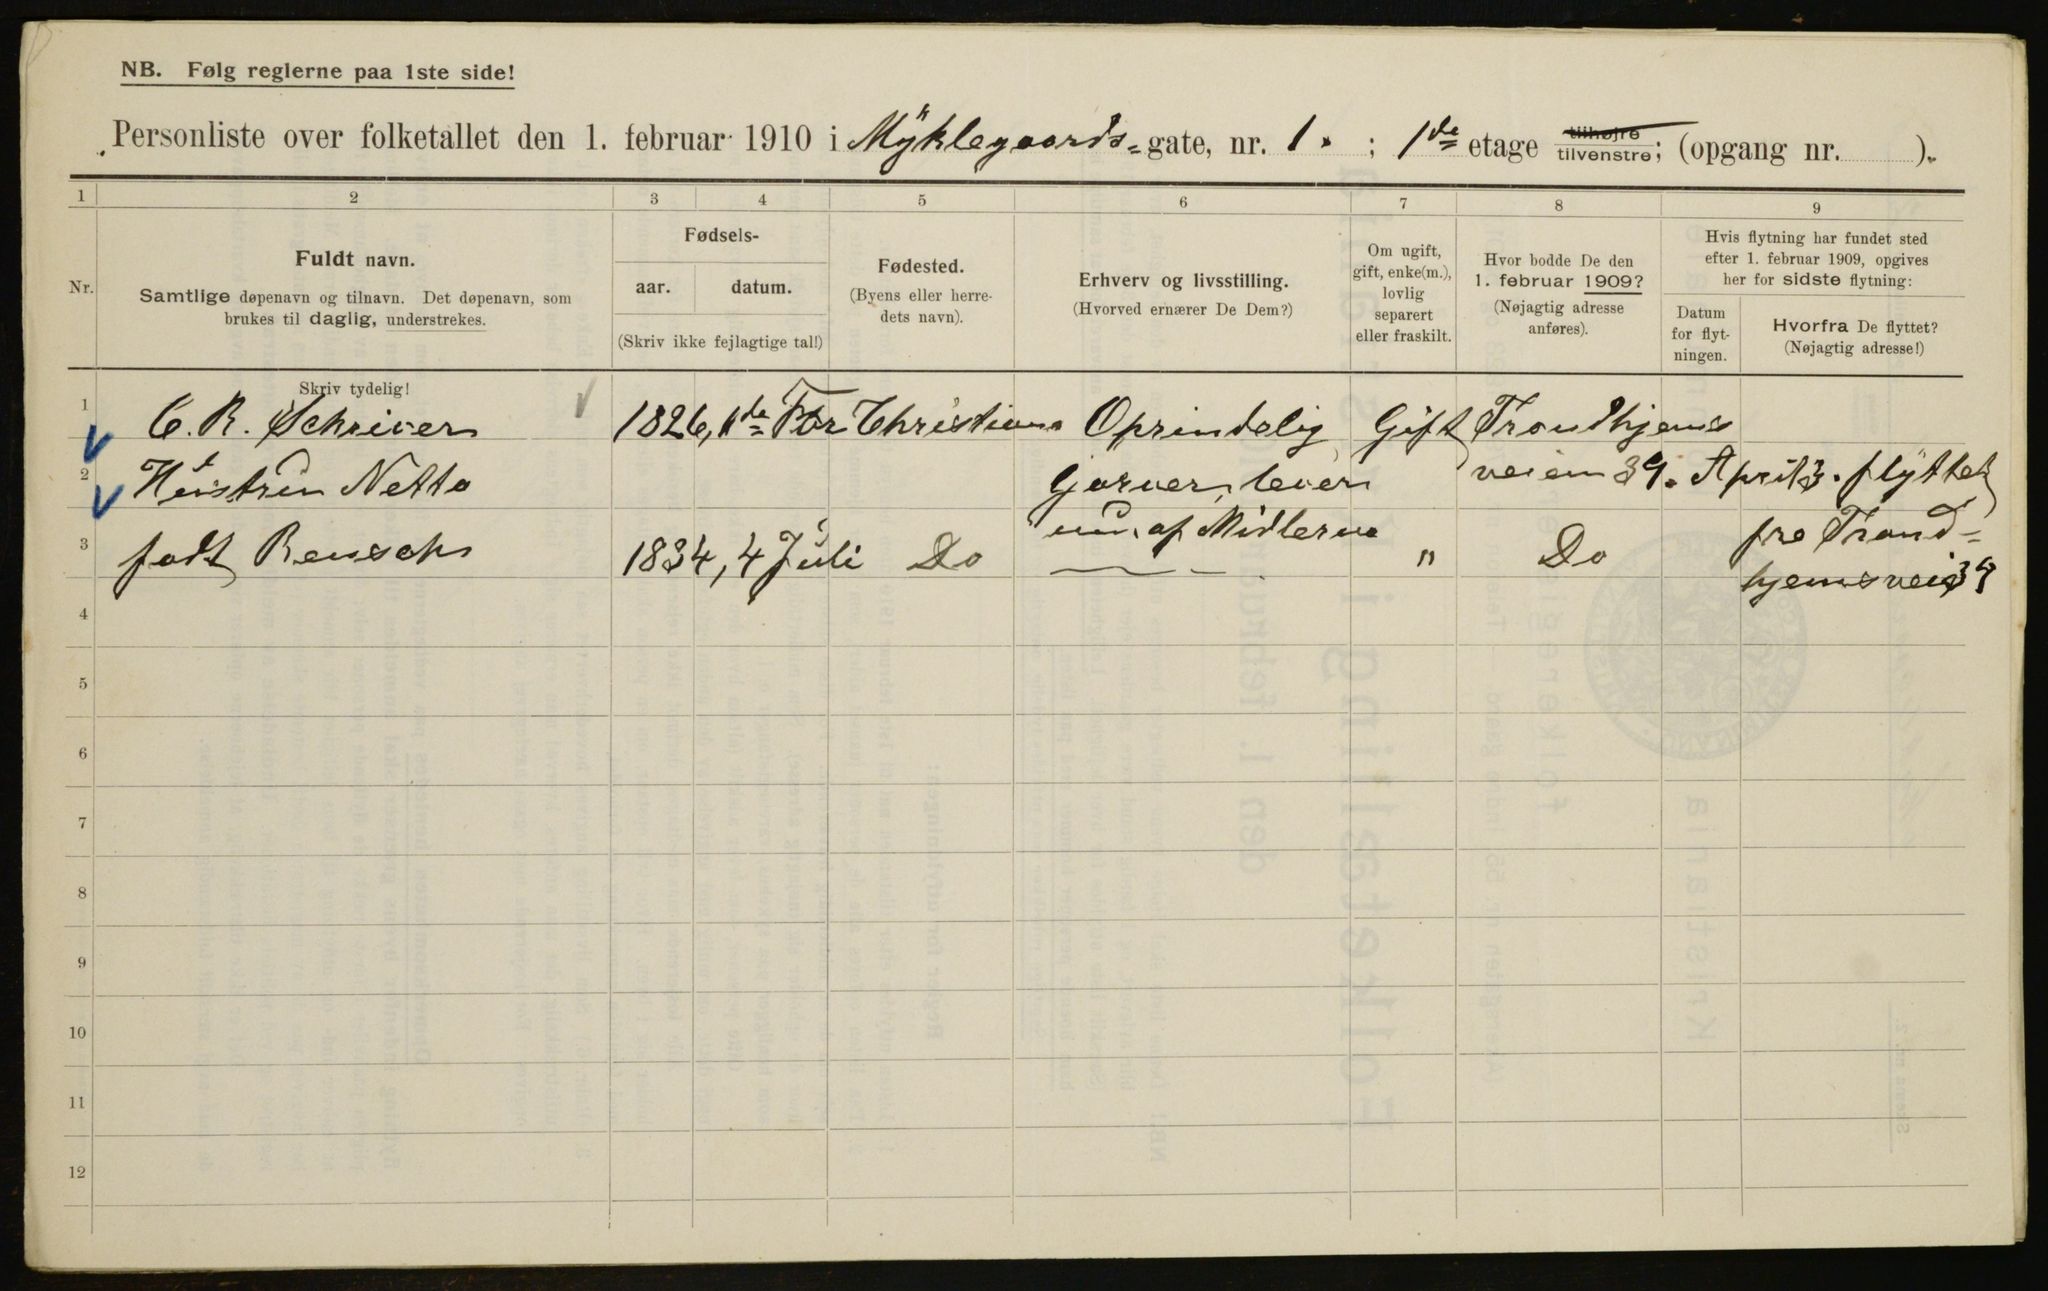 NB. Følg reglerne paa 1ste side!
Personliste over folketallet den 1. februar 1910 i Myklegaards-gate, nr. 1. ; 1de etage tilhøjre tilvenstre; (opgang nr. ).
1 2 3 4 5 6 7 8 9
Nr.
Fuldt navn.
Samtlige døpenavn og tilnavn. Det døpenavn, som
brukes til daglig, understrekes.
Fødsels-
aar. datum.
(Skriv ikke fejlagtige tal!)
Fødested.
(Byens eller herre-
dets navn).
Erhverv og livsstilling.
(Hvorved ernærer De Dem?)
Om ugift,
gift, enke(m.),
lovlig
separert
eller fraskilt.
Hvor bodde De den
1. februar 1909?
(Nøjagtig adresse
anføres).
Hvis flytning har fundet sted
efter 1. februar 1909, opgives
her for sidste flytning:
Datum
for flyt-
ningen.
Hvorfra De flyttet?
(Nøjagtig adresse!)
Skriv tydelig!
1 C. R. Schriver 1826, 1de Christiania Oprindelig Gift Trondhjems
2 Hustru Netto Garver, lever veien 39. April 3. flyttet
nu af Midlerne fra Trond-
3 født Reusch 1834, 4 Juli Do — " Do
hjemsvei 39
4
5
6
7
8
9
10
11
12